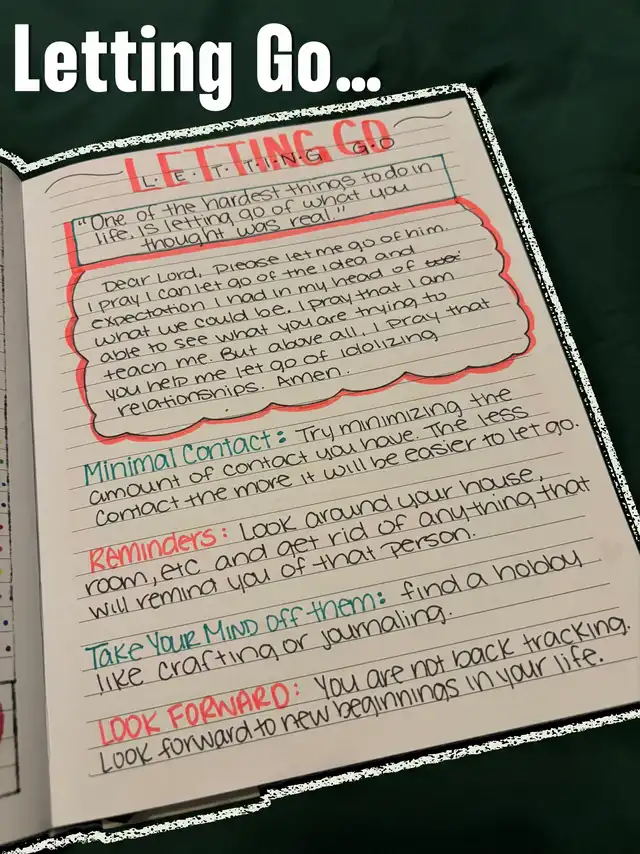 Letting Go...
LETTING GO
L·E·T·T·I·N·G GO
"One of the hardest things to do in
life, is letting go of what you
thought was real."
Dear Lord, please let me go of him.
I pray I can let go of the idea and
expectation I had in my head of
what we could be. I pray that I am
able to see what you are trying to
teach me. But above all, I pray that
you help me let go of idolizing
relationships. Amen.
Minimal Contact: Try minimizing the
amount of contact you have. The less
contact the more it will be easier to let go.
Reminders: Look around your house,
room, etc and get rid of anything that
will remind you of that person.
Take Your Mind off them: find a hobby
like crafting or journaling.
LOOK FORWARD: You are not back tracking.
Look forward to new beginnings in your life.